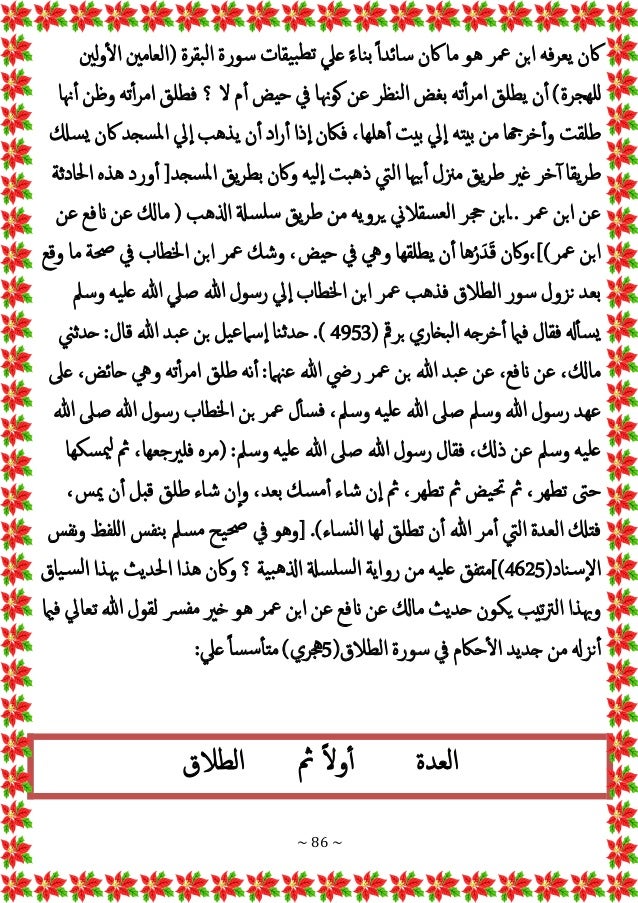 كان يعرفه ابن عمر هو ما كان سائداً بناءً علي تطبيقات سورة البقرة (العامين الأولين
للهجرة) أن يطلق امرأته بغض النظر عن كونها في حيض أم لا ؟ فطلق امرأته وظن أنها
طلقت وأخرجها من بيته إلي بيت أهلها، فكان إذا أراد أن يذهب إلي المسجد كان يسلك
طريقا آخر غير طريق منزل أبيها التي ذهبت إليه وكان بطريق المسجد[ أورد هذه الحادثة
عن ابن عمر ..ابن حجر العسقلاني يرويه من طريق سلسلة الذهب ( مالك عن نافع عن
ابن عمر)]،وكان قَدَرُها أن يطلقها وهي في حيض، وشك عمر ابن الخطاب في صحة ما وقع
بعد نزول سور الطلاق فذهب عمر ابن الخطاب إلي رسول الله صلي الله عليه وسلم
يسأله فقال فيما أخرجه البخاري برقم (4953 ). حدثنا إسماعيل بن عبد الله قال: حدثني
مالك، عن نافع، عن عبد الله بن عمر رضي الله عنهما: أنه طلق امرأته وهي حائض، على
عهد رسول الله وسلم صلى الله عليه وسلم، فسأل عمر بن الخطاب رسول الله صلى الله
عليه وسلم عن ذلك، فقال رسول الله صلى الله عليه وسلم: (مره فليرجعها، ثم ليمسكها
حتى تطهر، ثم تحيض ثم تطهر، ثم إن شاء أمسك بعد، وإن شاء طلق قبل أن يمس،
فتلك العدة التي أمر الله أن تطلق لها النساء). [وهو في صحيح مسلم بنفس اللفظ ونفس
الإسناد(4625)]متفق عليه من رواية السلسلة الذهبية ؟ وكان هذا الحديث بهذا السياق
وبهذا الترتيب يكون حديث مالك عن نافع عن ابن عمر هو خير مفسر لقول الله تعالي فيما
أنزله من جديد الأحكام في سورة الطلاق(5هجري) متأسساً علي:
العدة أولاً ثم الطلاق
~ 86 ~